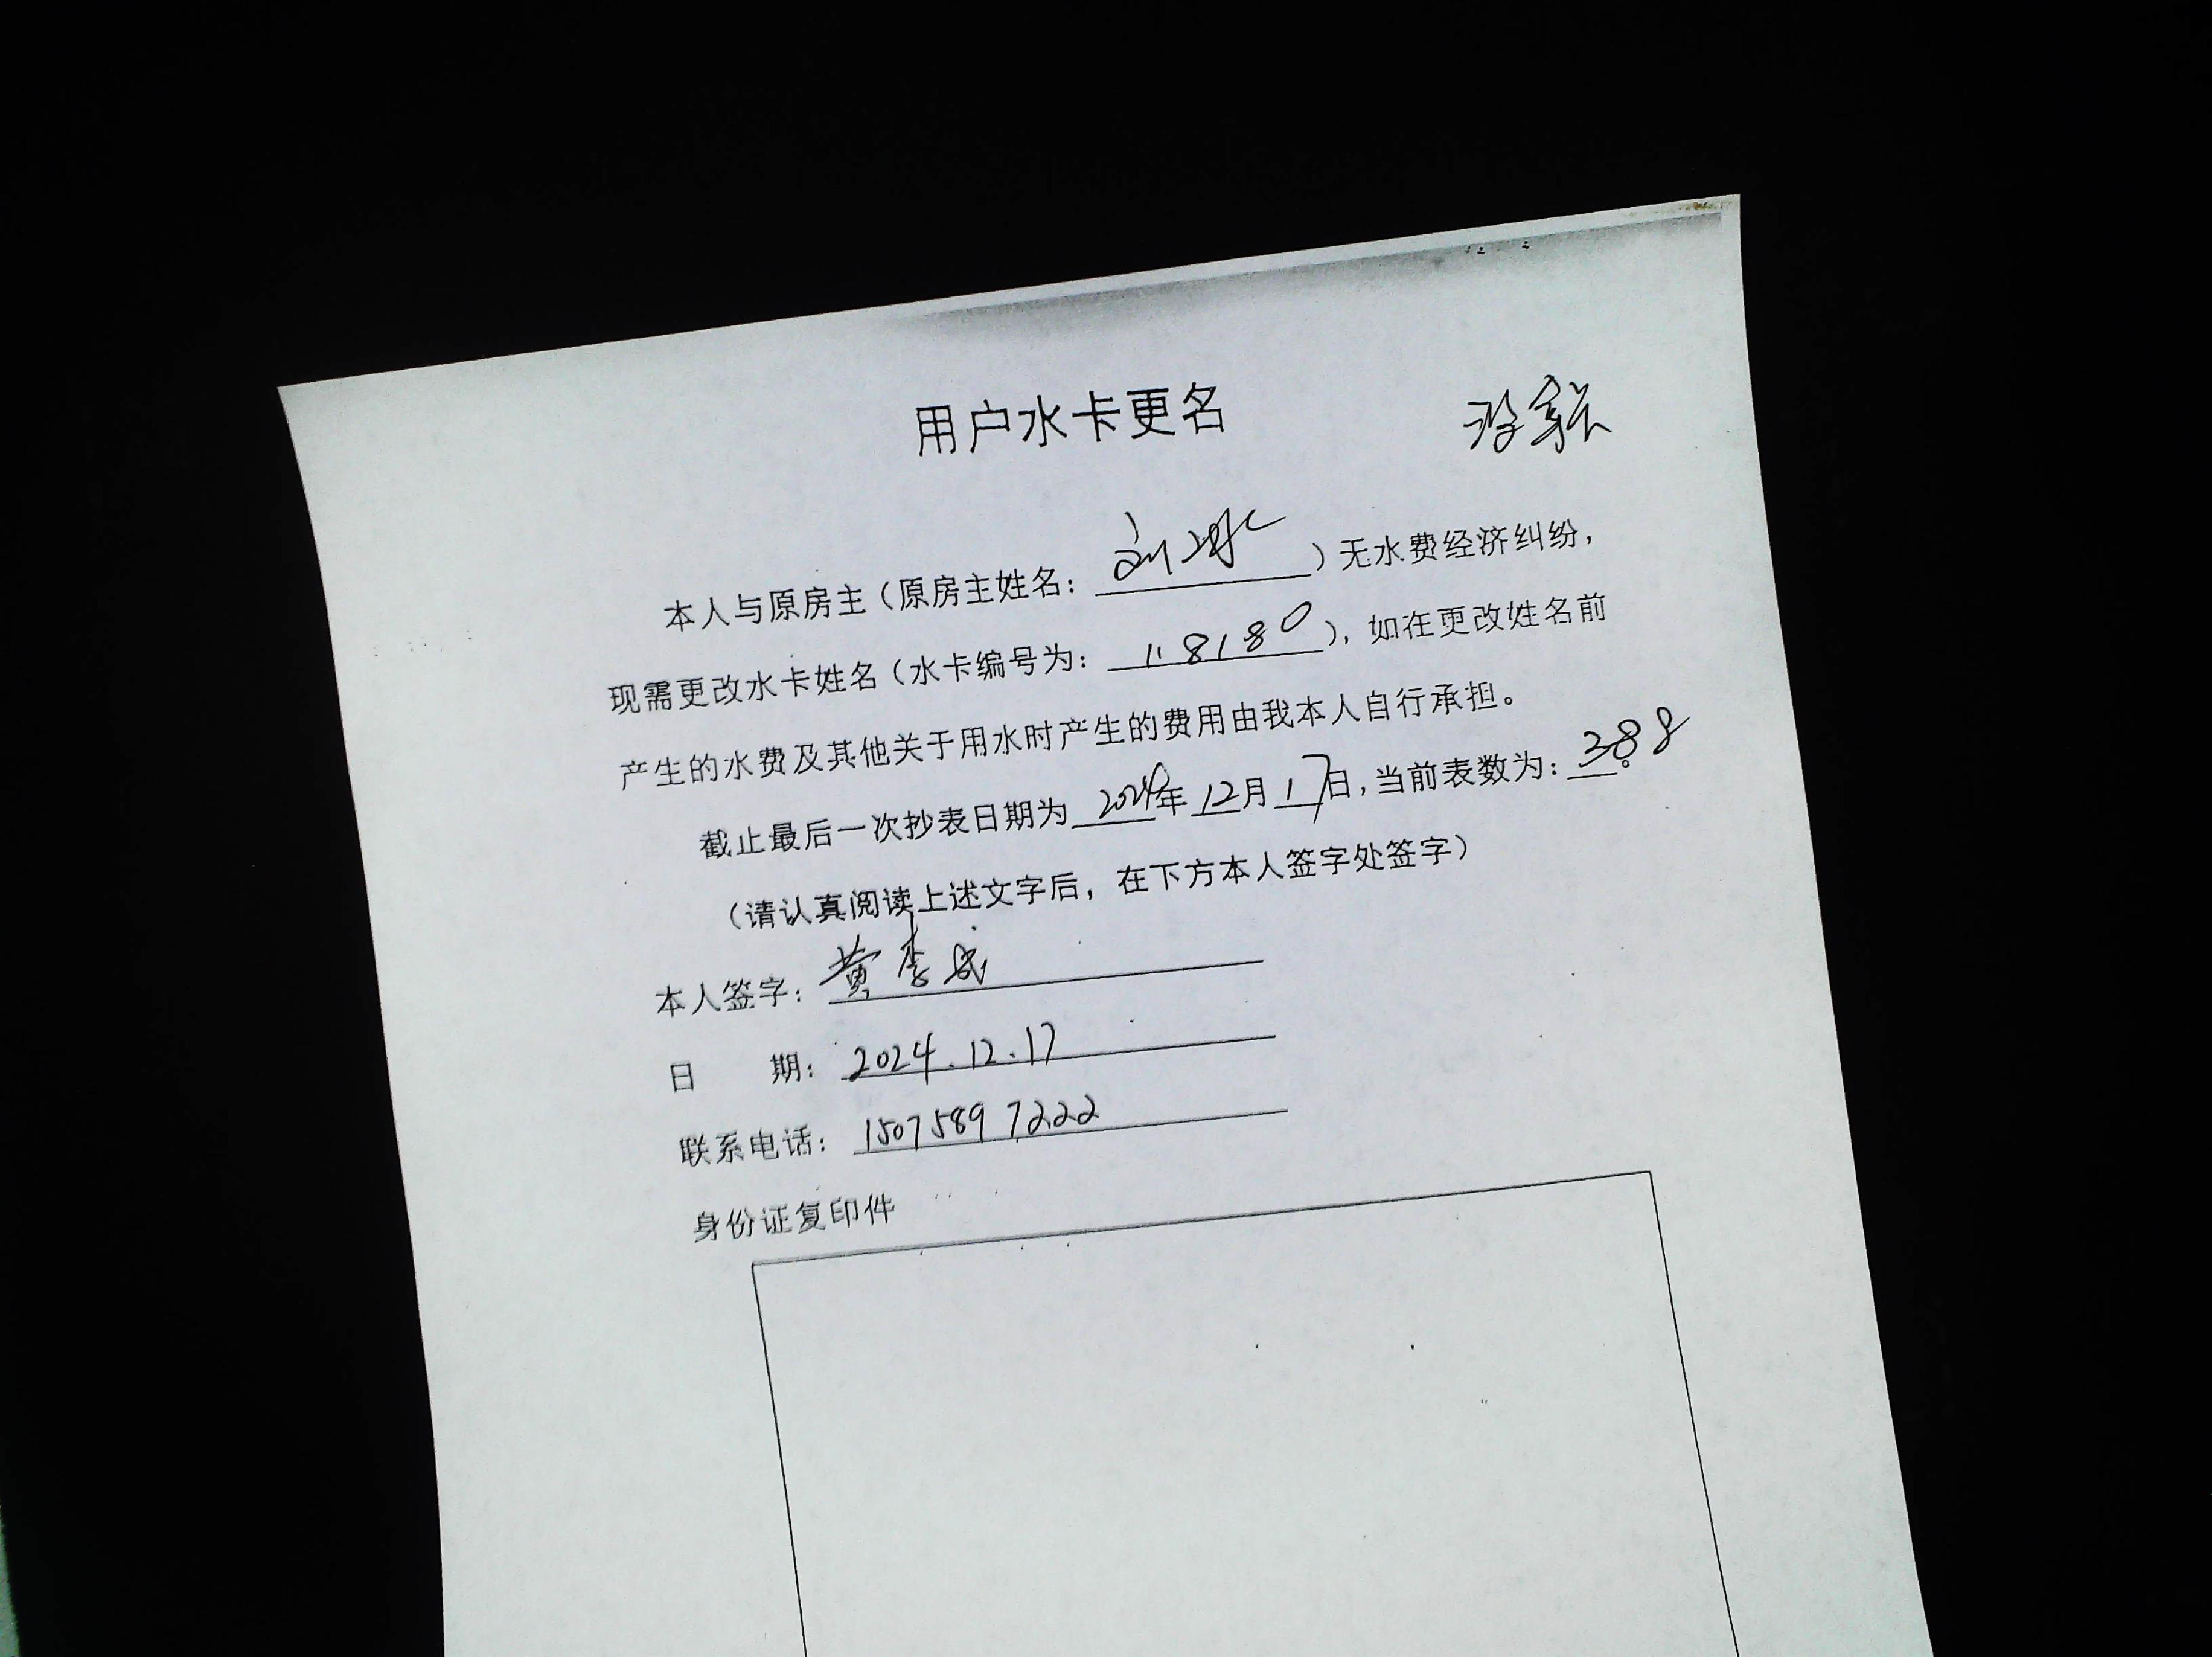 用户水卡更名
本人与原房主（原房主姓名：刘冰）无水费经济纠纷，
现需更改水卡姓名（水卡编号为：118180），如在更改姓名前
产生的水费及其他关于用水时产生的费用由我本人自行承担。
截止最后一次抄表日期为2024年12月17日，当前表数为：388。
（请认真阅读上述文字后，在下方本人签字处签字）
本人签字：黄李成
日 期：2024.12.17
联系电话：15075897222
身份证复印件